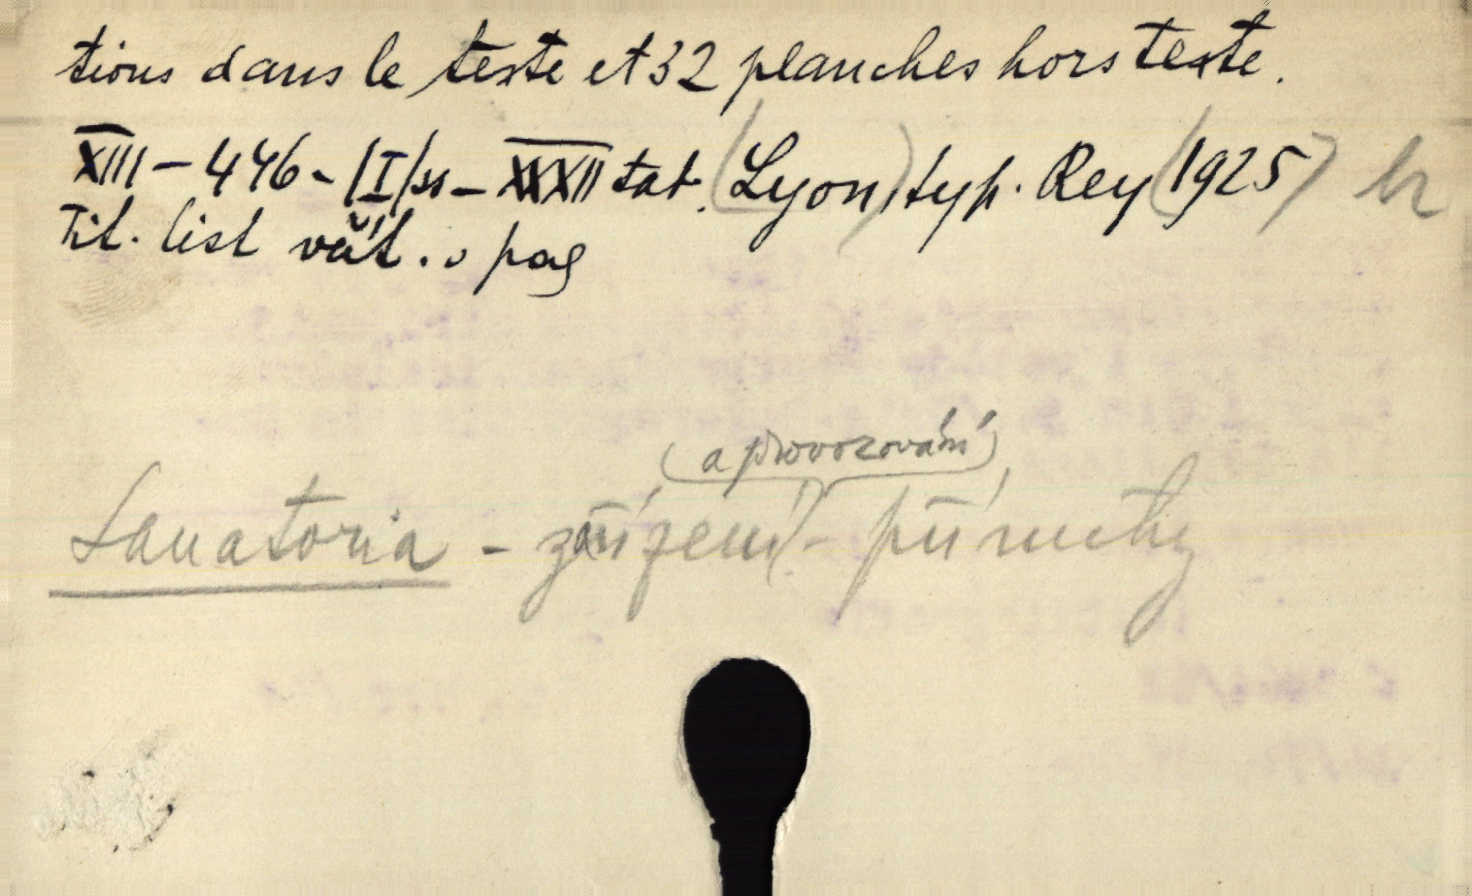 tions dans le texte et 32 planches hors texte.
XIII – 446 – |I| ss – XXXII tab. (Lyon), typ. Rey (1925) br
Tit. list vářl. v pag
(a provozování)
Sanatoria - zařízení - příručky